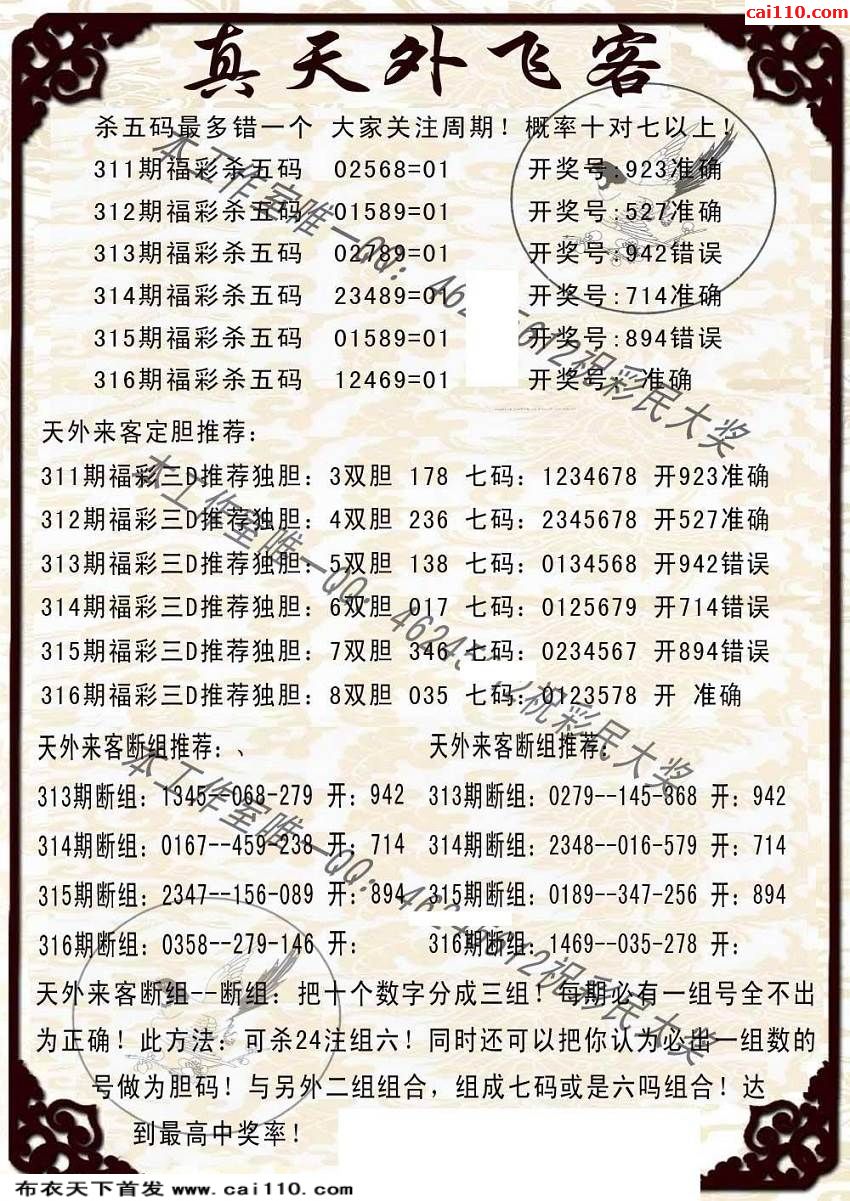 cai110.com
真天外飞客
杀五码最多错一个 大家关注周期！概率十对七以上！
311期福彩杀五码 02568=01 开奖号:923准确
312期福彩杀五码 01589=01 开奖号:527准确
313期福彩杀五码 02189=01 开奖号:942错误
314期福彩杀五码 23489=01 开奖号:714准确
315期福彩杀五码 01589=01 开奖号:894错误
316期福彩杀五码 12469=01 开奖号: 准确
天外来客定胆推荐：
311期福彩三D推荐独胆：3双胆 178 七码：1234678 开923准确
312期福彩三D推荐独胆：4双胆 236 七码：2345678 开527准确
313期福彩三D推荐独胆：5双胆 138 七码：0134568 开942错误
314期福彩三D推荐独胆：6双胆 017 七码：0125679 开714错误
315期福彩三D推荐独胆：7双胆 346 七码：0234567 开894错误
316期福彩三D推荐独胆：8双胆 035 七码：0123578 开 准确
天外来客断组推荐：、 天外来客断组推荐：
313期断组：1345--068-279 开：942 313期断组：0279--145-868 开：942
314期断组：0167--459-238 开：714 314期断组：2348--016-579 开：714
315期断组：2347--156-089 开：894 315期断组：0189--347-256 开：894
316期断组：0358--279-146 开： 316期断组：1469--035-278 开：
天外来客断组--断组：把十个数字分成三组！每期必有一组号全不出
为正确！此方法：可杀24注组六！同时还可以把你认为必出一组数的
号做为胆码！与另外二组组合，组成七码或是六吗组合！达
到最高中奖率！
本工作室唯一QQ：462 5612祝彩民大奖
本工作室唯一QQ：4624 2祝彩民大奖
本工作室唯一QQ：462 5612祝彩民大奖
布衣天下首发 www.cai110.com